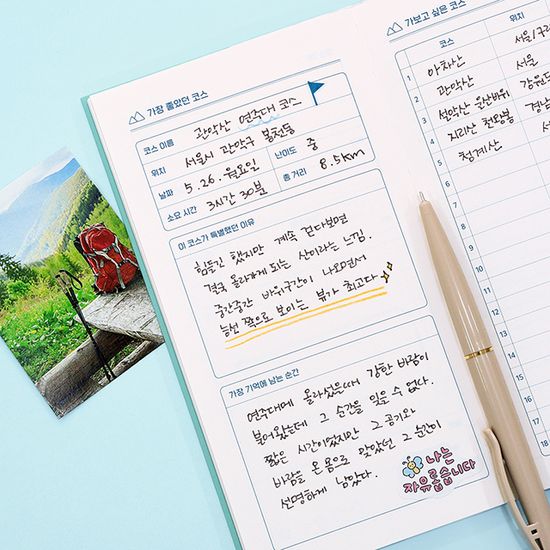 가장 좋았던 코스
코스 이름 관악산 연주대 코스
위치 서울시 관악구 봉천동
날짜 5.26. 월요일 난이도 중
소요 시간 3시간 30분 총 거리 8.5km
이 코스가 특별했던 이유
힘들긴 했지만 계속 걷다보면
결국 올라가게 되는 산이라는 느낌.
중간중간 바위구간이 나오면서
능선 쪽으로 보이는 뷰가 최고다
가장 기억에 남는 순간
연주대에 올라섰을때 강한 바람이
불어왔는데 그 순간을 잊을 수 없다.
짧은 시간이었지만 그 공기와
바람을 온몸으로 맞았던 그 순간이
선명하게 남았다.
나는
자유롭습니다
가보고 싶은 코스
코스 위치
1 아차산 서울/구리
2 관악산 서울
3 설악산 울산바위 강원도
4 지리산 천왕봉 경남
5 청계산 서울
6
7
8
9
12
13
14
15
16
17
18